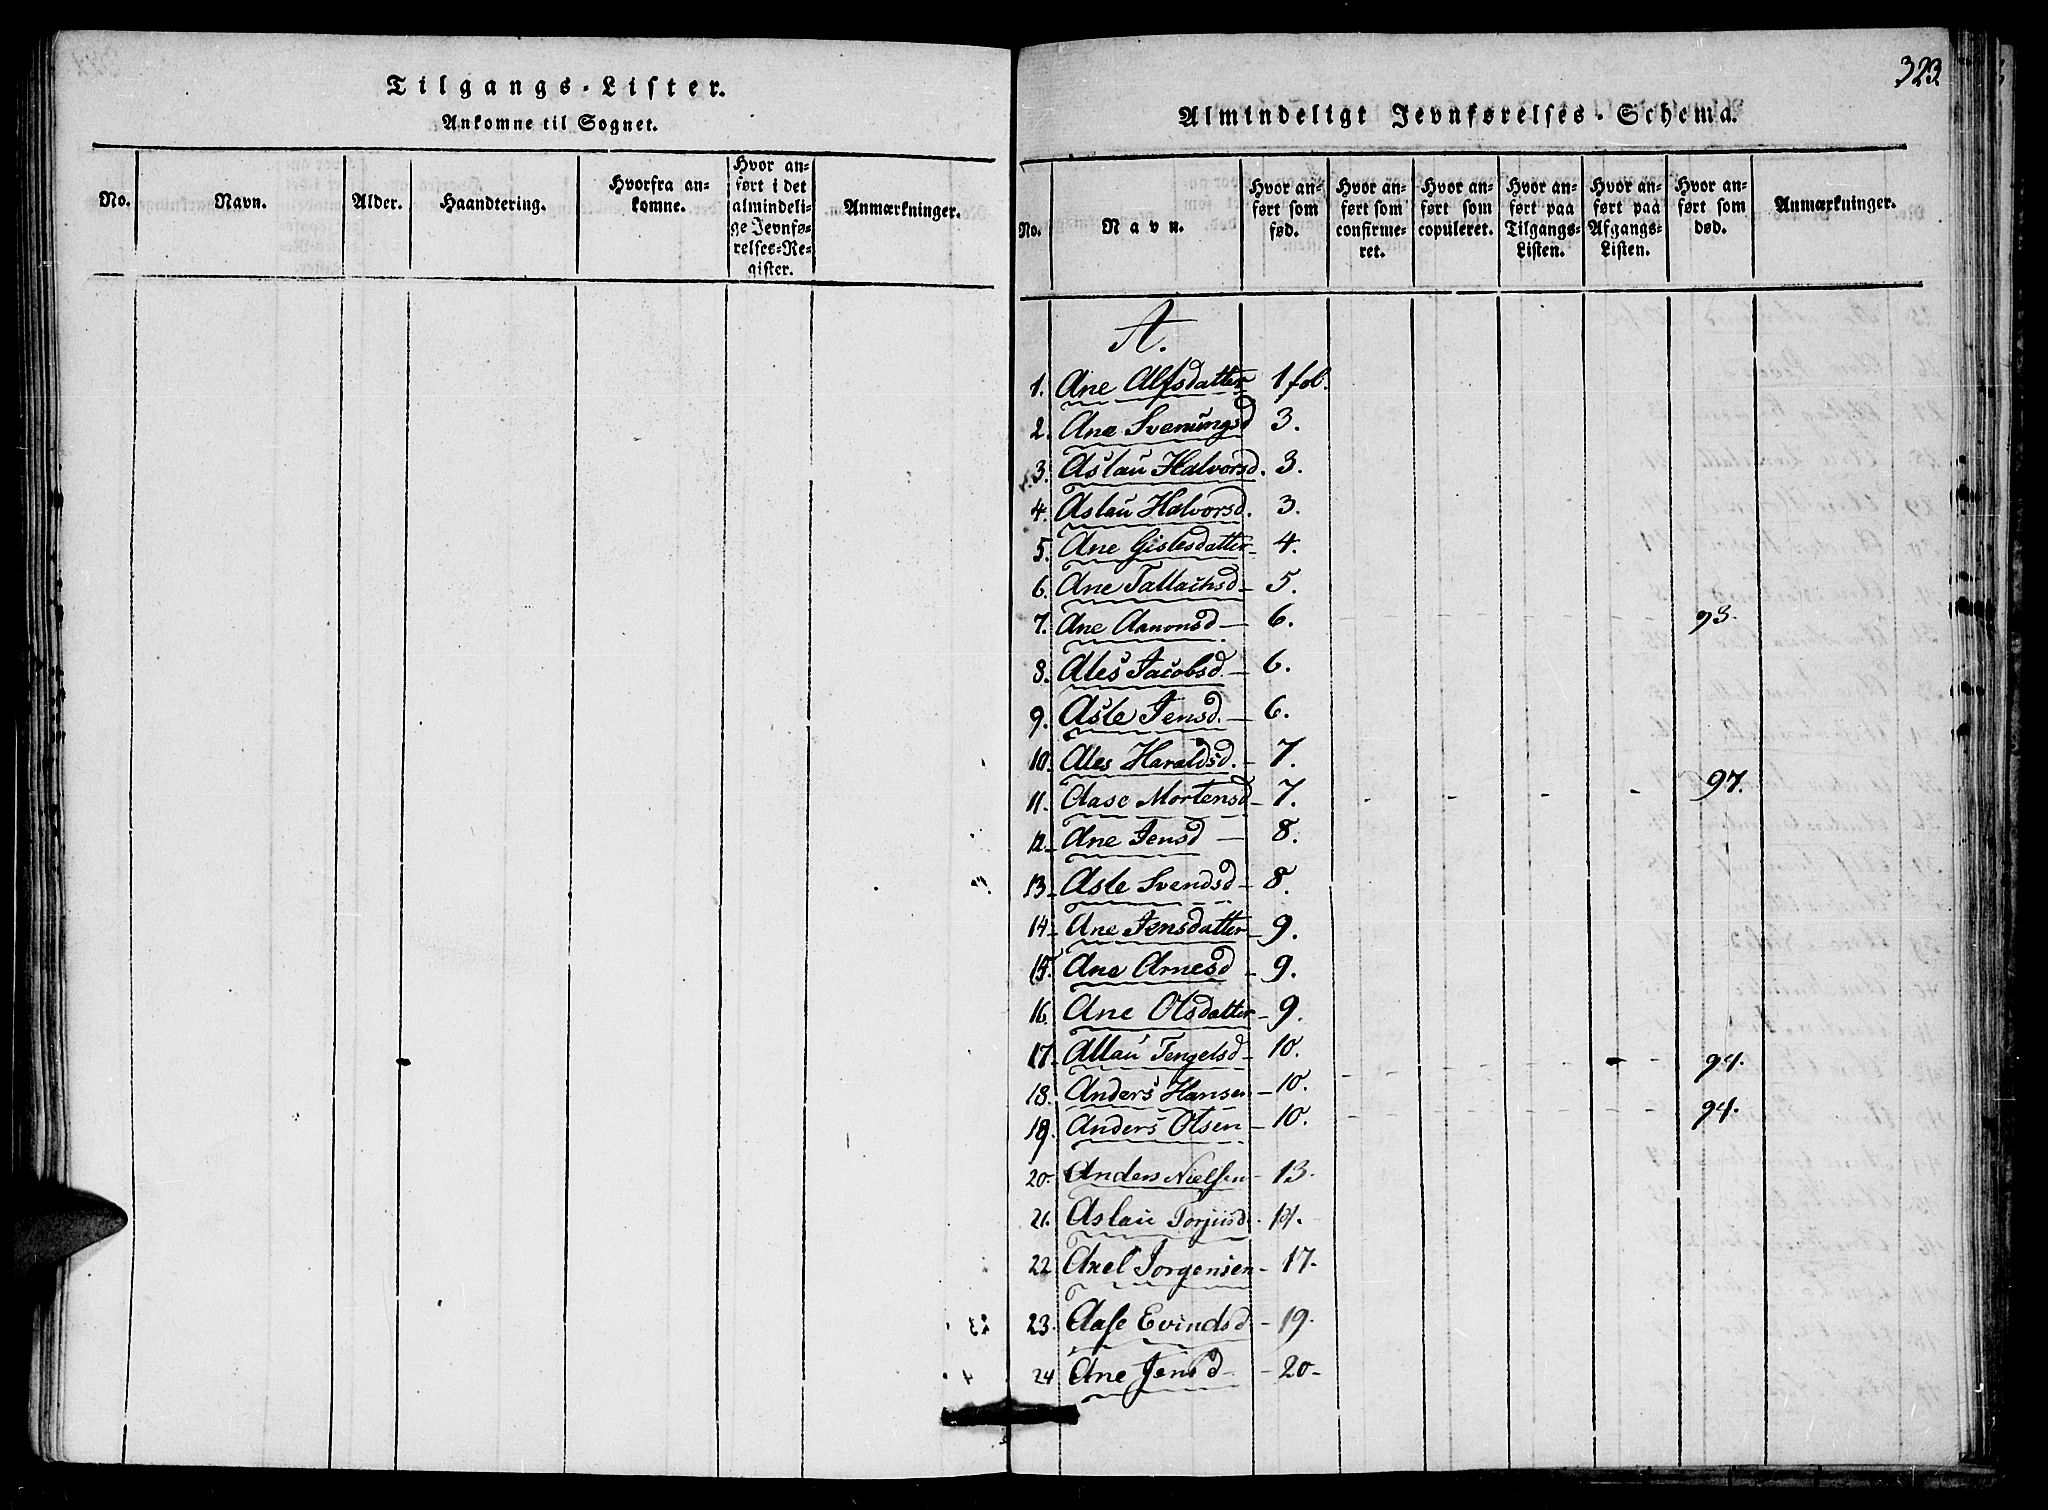 Tilgangs-Lister.
Ankomne til Sognet.
No. Navn. Alder. Haandtering. Hvorfra an-komne. Hvor an-ført i det almindeli-ge Jevnfø-relses-Re-gister. Anmærkninger.
323
Almindeligt Jevnførelses-Schema.
No. Navn. Hvor an-ført som fød. Hvor an-ført som confirme-ret. Hvor an-ført som copuleret. Hvor an-ført paa Tilgangs-Listen. Hvor an-ført paa Afgangs-Listen. Hvor an-ført som død. Anmærkninger.
A.
1. Ane Alfsdatter 1 fol.
2. Ane Svenungsd 3.
3. Aslau Halvorsd. 3.
4. Aslau Halvorsd. 3.
5. Ane Gislesdatter 4.
6. Ane Tallachsd 5.
7. Ane Aanonsd 6. 93.
8. Ales Jacobsd. 6.
9. Asle Jensd. 6.
10. Ales Haraldsd. 7.
11. Aase Mortensd 7. 97.
12. Ane Jensd 8.
13. Asle Svendsd 8.
14. Ane Jensdatter 9.
15. Ane Arnesd 9.
16. Ane Olsdatter 9.
17. Allau Tengelsd 10.
18. Anders Hansen 10. 94.
19. Anders Olsen 10. 94.
20. Anders Nielsen 13.
21. Aslau Torjusd. 14.
22 Axel Jorgensen 17.
23. Aase Evindsd 19.
24 Ane Jensd 20